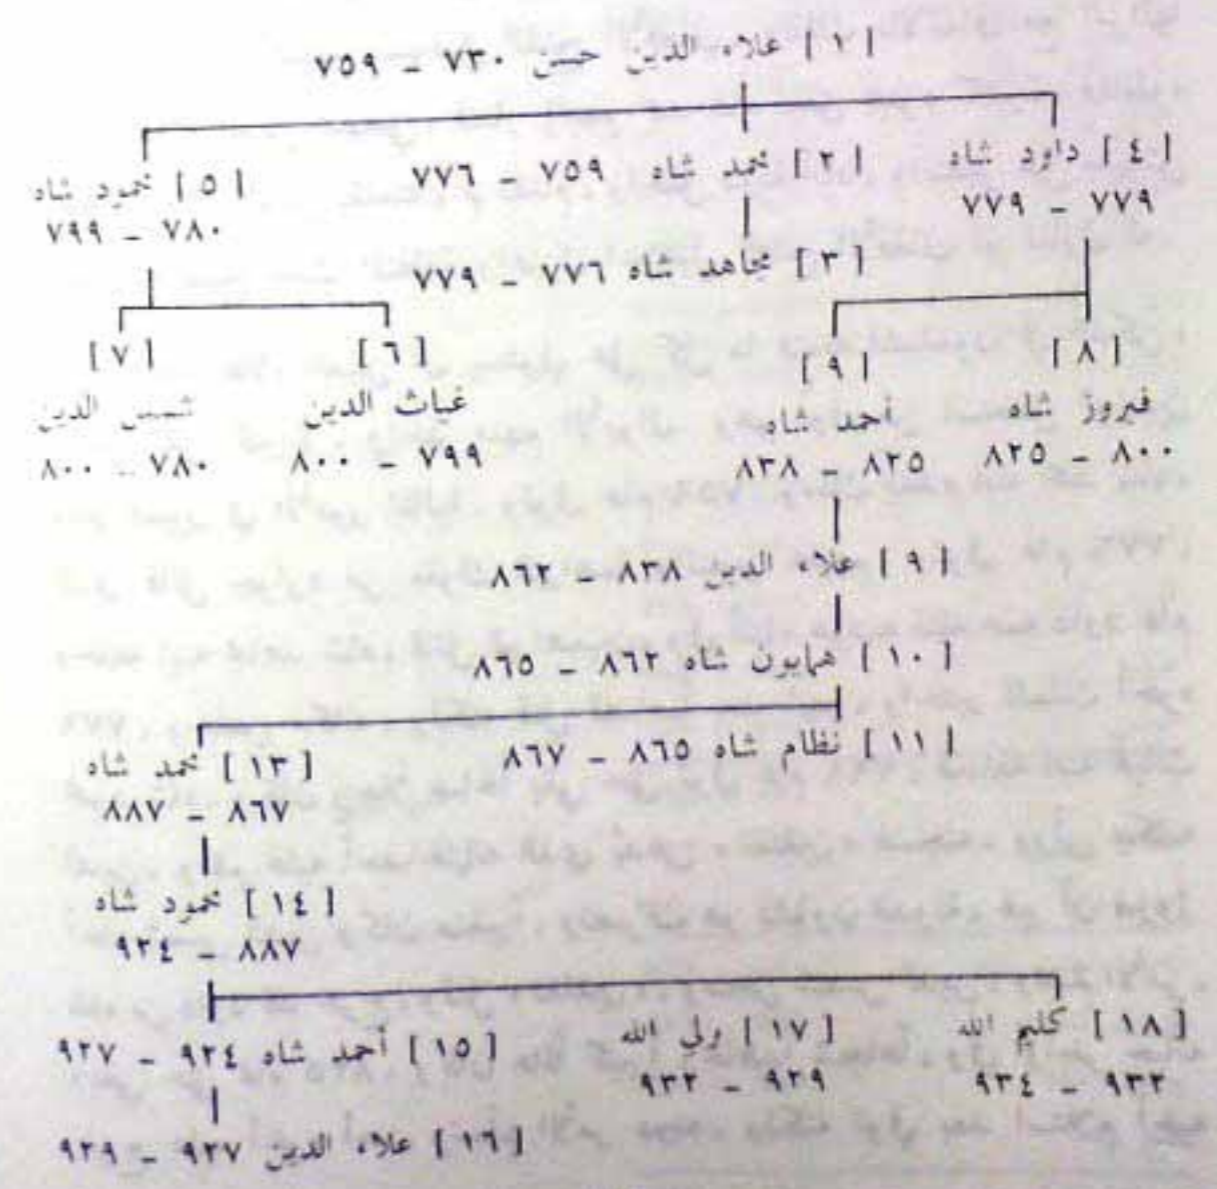 [ ١ ] علاء الدين حسن ٧٣٠ ـ ٧٥٩
[ ٤ ] داود شاه
٧٧٩ ـ ٧٧٩
[ ٢ ] محمد شاه ٧٥٩ ـ ٧٧٦
[ ٥ ] محمود شاه
٧٨٠ ـ ٧٩٩
[ ٣ ] مجاهد شاه ٧٧٦ ـ ٧٧٩
[ ٨ ]
فيروز شاه
٨٠٠ ـ ٨٢٥
[ ٩ ]
أحمد شاه
٨٢٥ ـ ٨٣٨
[ ٦ ]
غياث الدين
٧٩٩ ـ ٨٠٠
[ ٧ ]
شمس الدين
٧٨٠ ـ ٨٠٠
[ ٩ ] علاء الدين ٨٣٨ ـ ٨٦٢
[ ١٠ ] همايون شاه ٨٦٢ ـ ٨٦٥
[ ١١ ] نظام شاه ٨٦٥ ـ ٨٦٧
[ ١٣ ] محمد شاه
٨٦٧ ـ ٨٨٧
[ ١٤ ] محمود شاه
٨٨٧ ـ ٩٢٤
[ ١٨ ] كليم الله
٩٣٢ ـ ٩٣٤
[ ١٧ ] ولي الله
٩٢٩ ـ ٩٣٢
[ ١٥ ] أحمد شاه ٩٢٤ ـ ٩٢٧
[ ١٦ ] علاء الدين ٩٢٧ ـ ٩٢٩